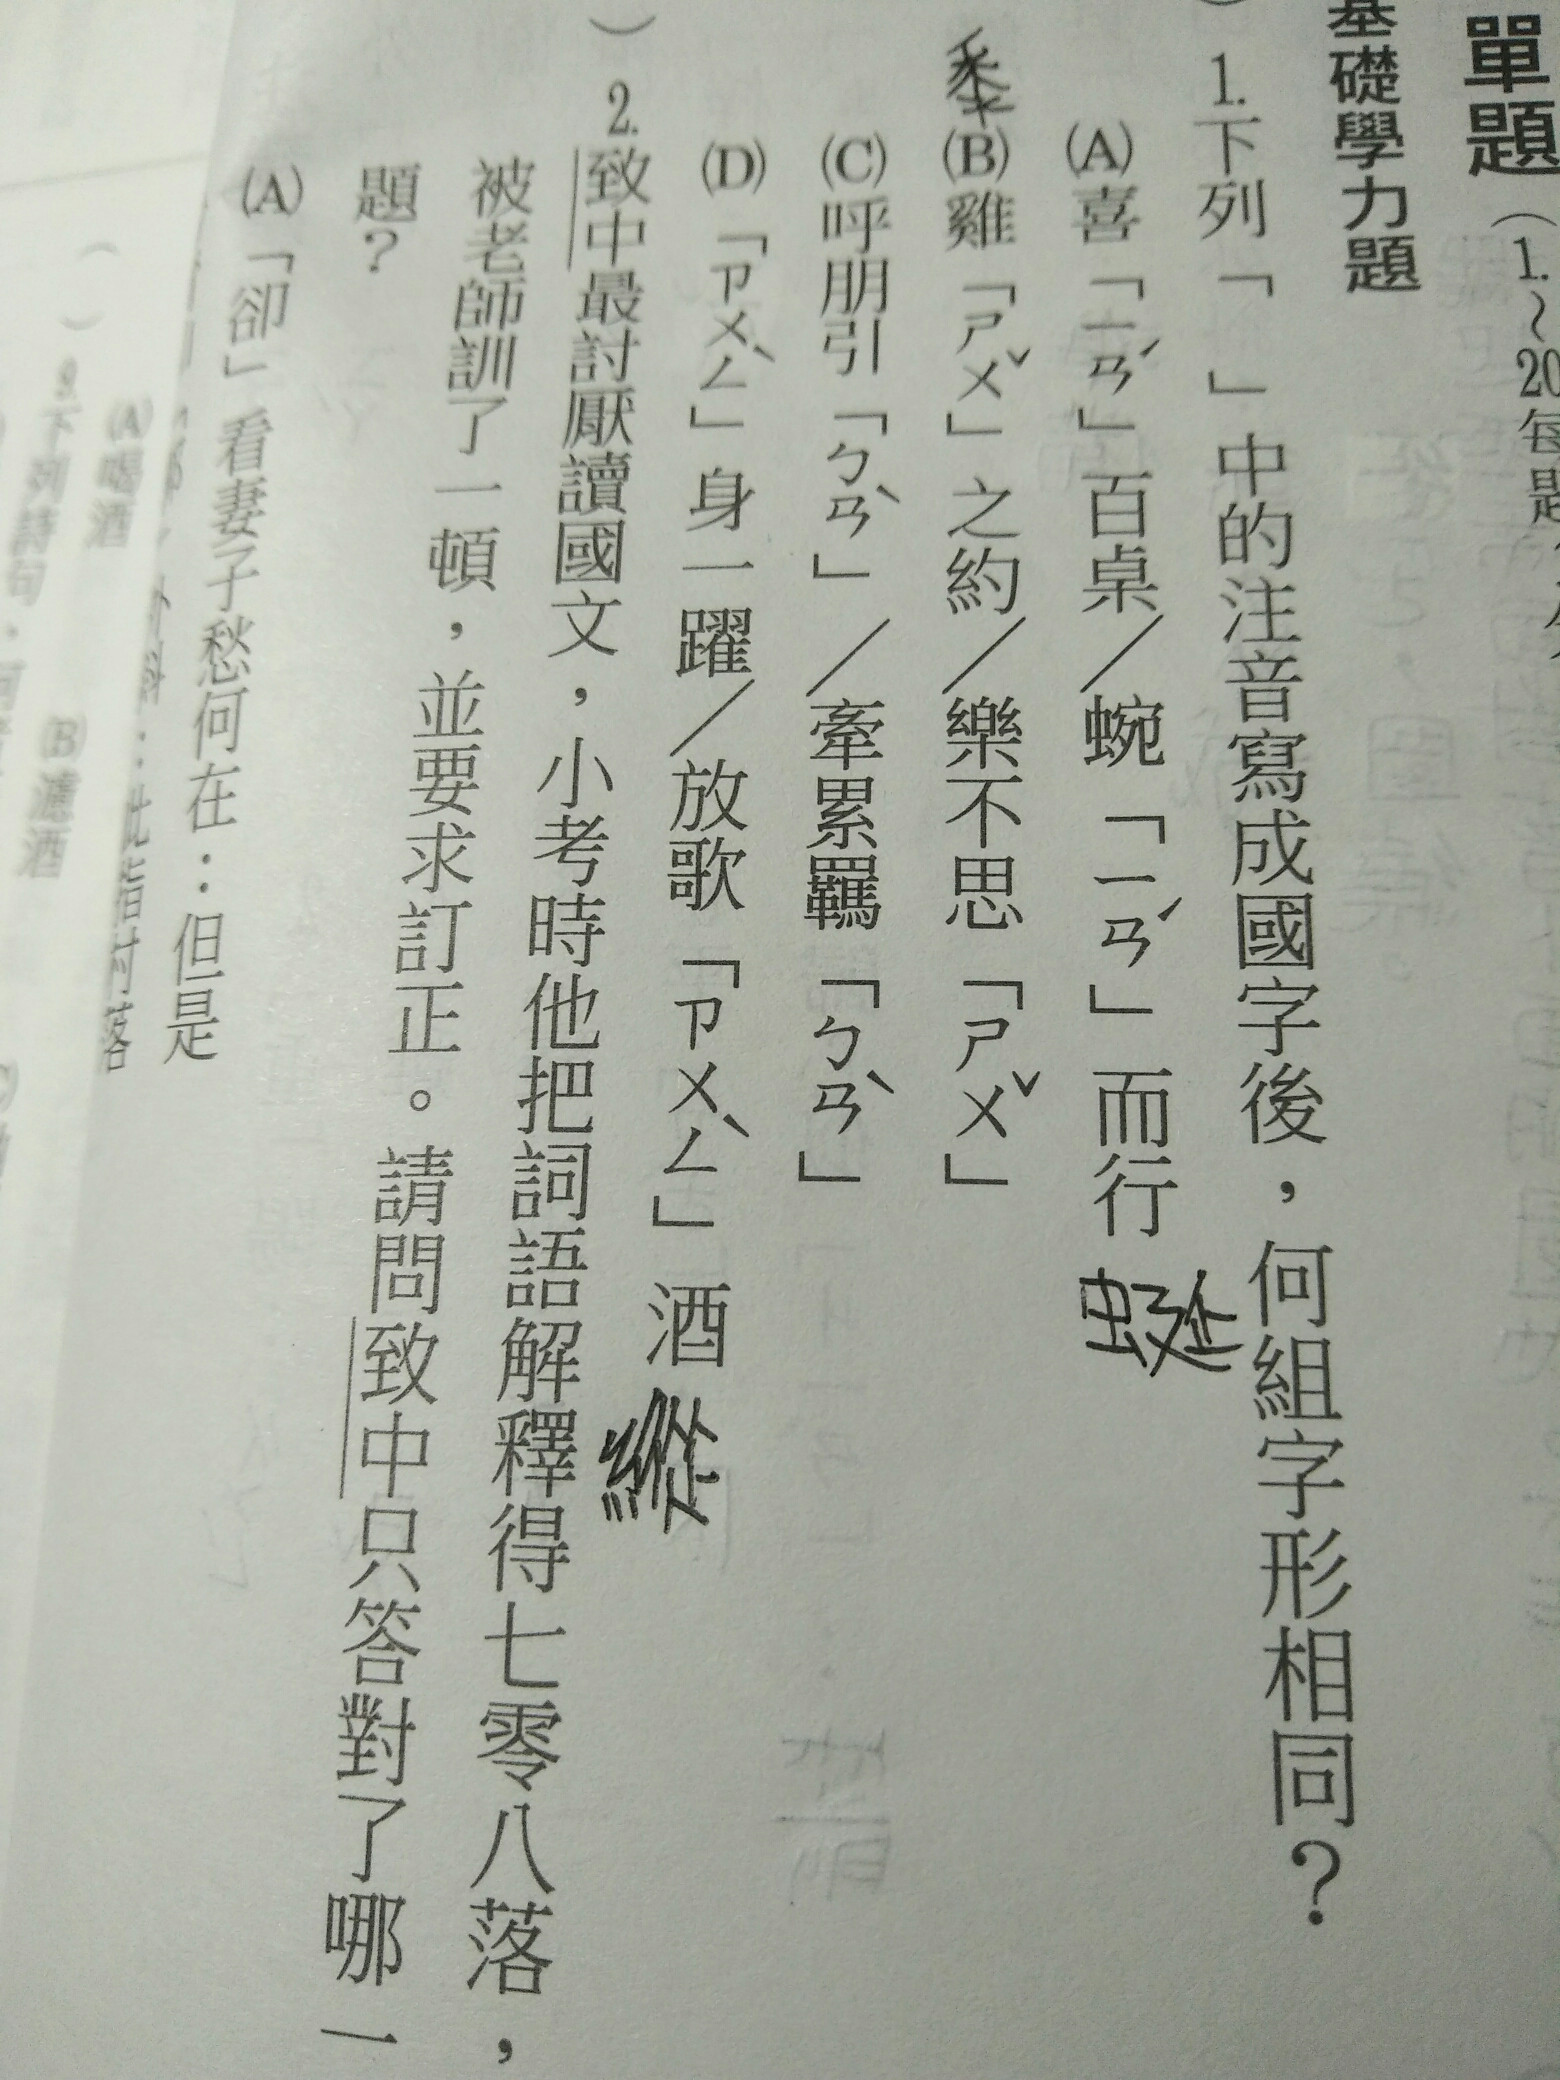 單題（1.～20.每題
基礎學力題
）1.下列「　」中的注音寫成國字後，何組字形相同？
(A)喜「ㄧㄢˊ」百桌／蜿「ㄧㄢˊ」而行 蜒
黍
(B)雞「ㄕㄨˇ」之約／樂不思「ㄕㄨˇ」
(C)呼朋引「ㄅㄢˋ」／牽累羈「ㄅㄢˋ」
(D)「ㄗㄨㄥˋ」身一躍／放歌「ㄗㄨㄥˋ」酒 縱
）2.致中最討厭讀國文，小考時他把詞語解釋得七零八落，
被老師訓了一頓，並要求訂正。請問致中只答對了哪一
題？
(A)「卻」看妻子愁何在：但是
：此指村落
（　）9.下列詩句，
(A)喝酒
(B)濾酒